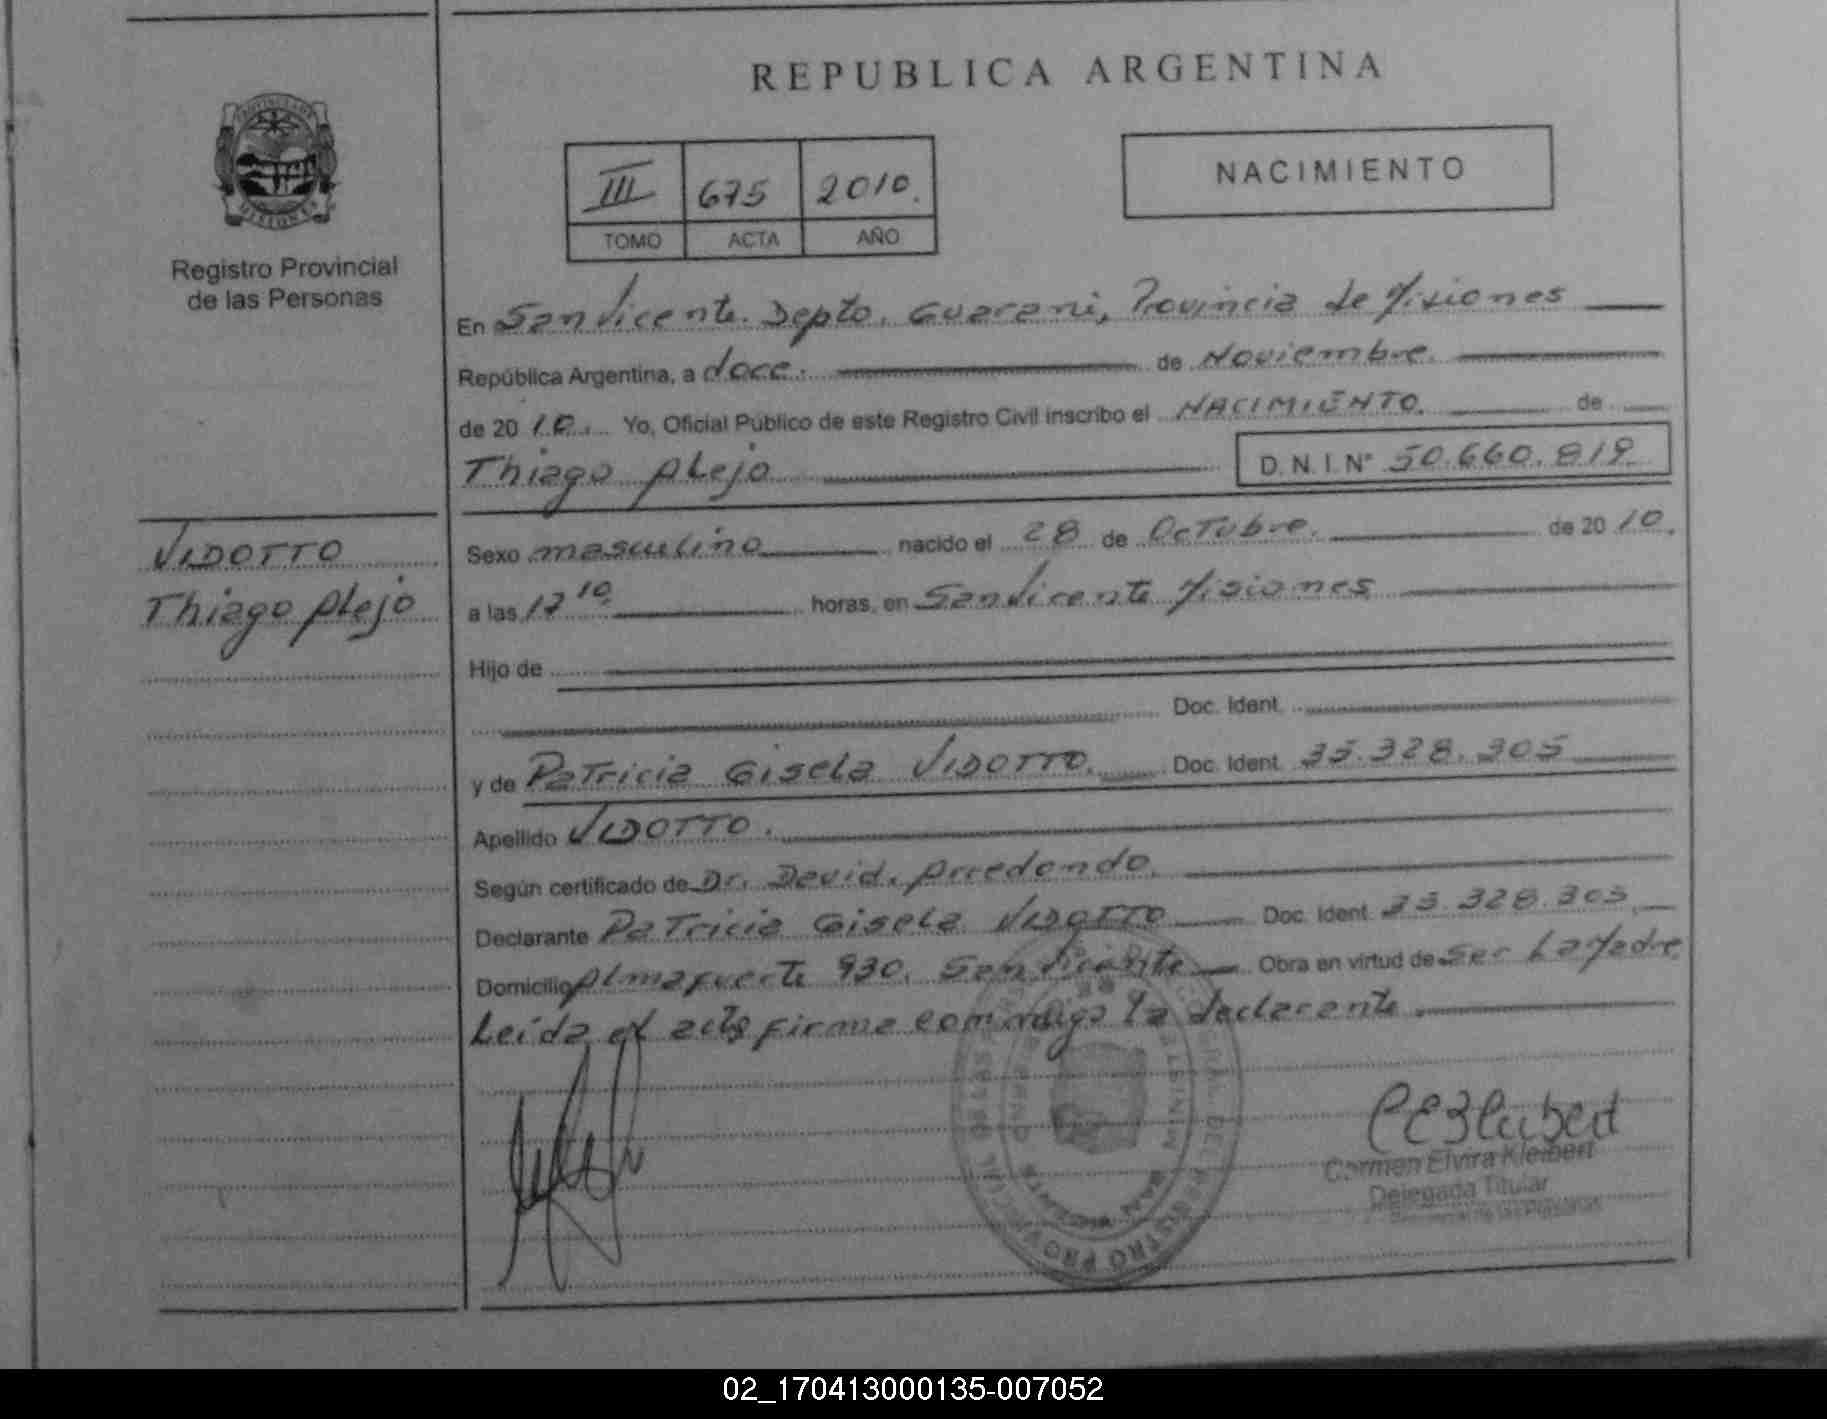 REPUBLICA ARGENTINA
NACIMIENTO
III 675 2010.
TOMO ACTA AÑO
Registro Provincial
de las Personas
En San Vicente. Depto. Guarani, Provincia de Misiones
República Argentina, a doce. de Noviembre.
de 2010. Yo, Oficial Público de este Registro Civil inscribo el NACIMIENTO. de
Thiago Alejo D.N.I.N° 50.660.819
VIDOTTO
Thiago Alejo
Sexo masculino nacido el 28 de Octubre. de 2010.
a las 17 10 horas, en San Vicente Misiones
Hijo de
Doc. Ident.
y de Patricia Gisela VIDOTTO. Doc. Ident. 35.328.305
Apellido VIDOTTO.
Según certificado de Dr. David. Arredondo.
Declarante Patricia Gisela VIDOTTO Doc. Ident. 35.328.305
Domicilio Almafuerte 930. San Vicente Obra en virtud de ser La Madre
Leída el acta firma conmigo la declarante.
Carmen Elvira Kleibert
Delegada Titular
02_170413000135-007052